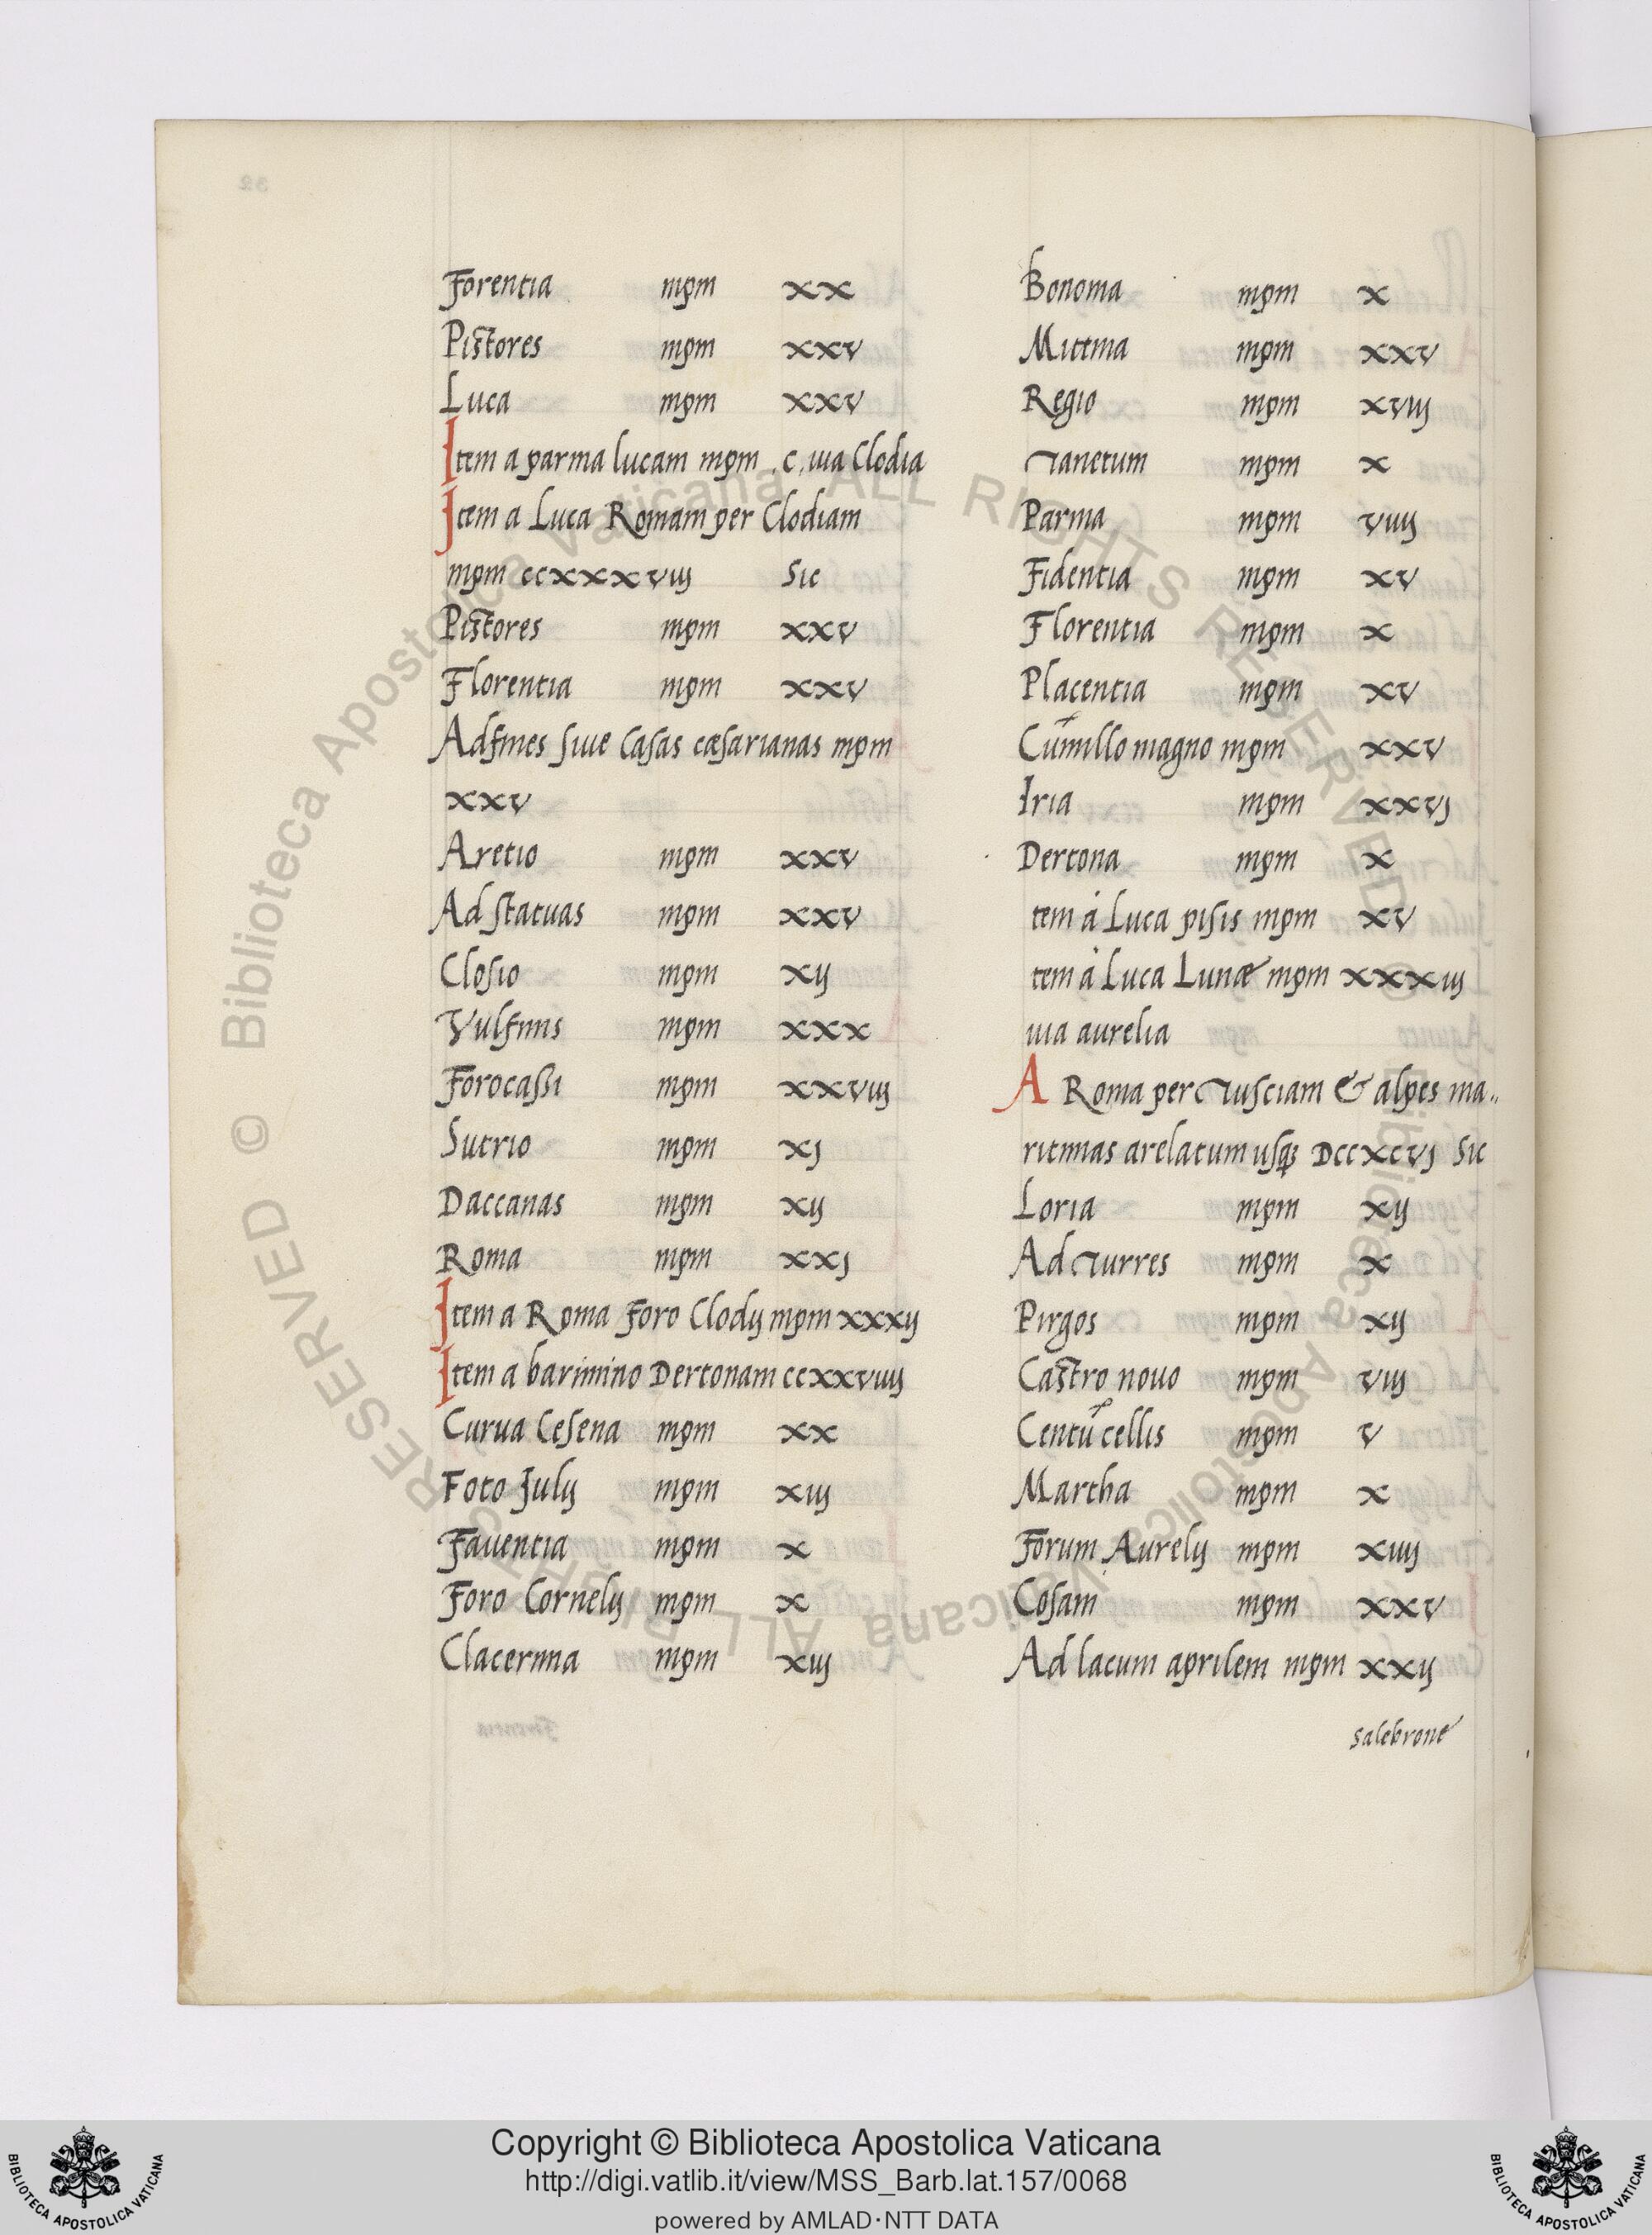 Forentia mpm xx
Pistores mpm xxv
Luca mpm xxv
Item a parma lucam mpm .c. uia Clodia
Item a Luca Romam per Clodiam
mpm ccxxxviij Sic
Pistores mpm xxv
Florentia mpm xxv
Adfines siue Casas cæsarianas mpm
xxv
Aretio mpm xxv
Ad statuas mpm xxv
Closio mpm xij
Vulfinis mpm xxx
Forocassi mpm xxviij
Sutrio mpm xj
Daccanas mpm xij
Roma mpm xxj
Item a Roma Foro Clodij mpm xxxij
Item a barimino Dertonam ccxxviiij
Curua Cesena mpm xx
Foto Julij mpm xiij
Fauentia mpm x
Foro Cornelij mpm x
Clacernna mpm xiij
Bonoma mpm x
Mittma mpm xxv
Regio mpm xviij
Tanetum mpm x
Parma mpm viiij
Fidentia mpm xv
Florentia mpm x
Placentia mpm xv
Cumillo magno mpm xxv
Iria mpm xxvj
Dertona mpm x
tem á Luca pisis mpm xv
tem á Luca Lunæ mpm xxxiij
uia aurelia
A Roma per Tusciam & alpes ma„
ritimas arelatum usq3 Dccxcvj Sic
Loria mpm xij
Ad Turres mpm x
Pirgos mpm xij
Castro nouo mpm viij
Centũcellis mpm v
Martha mpm x
Forum Aurelij mpm xiiij
Cosam mpm xxv
Ad lacum aprilem mpm xxij
salebrone
© Biblioteca Apostolica Vaticana ALL RIGHTS RESERVED
© Biblioteca Apostolica Vaticana ALL RIGHTS RESERVED
Copyright © Biblioteca Apostolica Vaticana
http://digi.vatlib.it/view/MSS_Barb.lat.157/0068
powered by AMLAD·NTT DATA
BIBLIOTECA APOSTOLICA VATICANA
BIBLIOTECA APOSTOLICA VATICANA